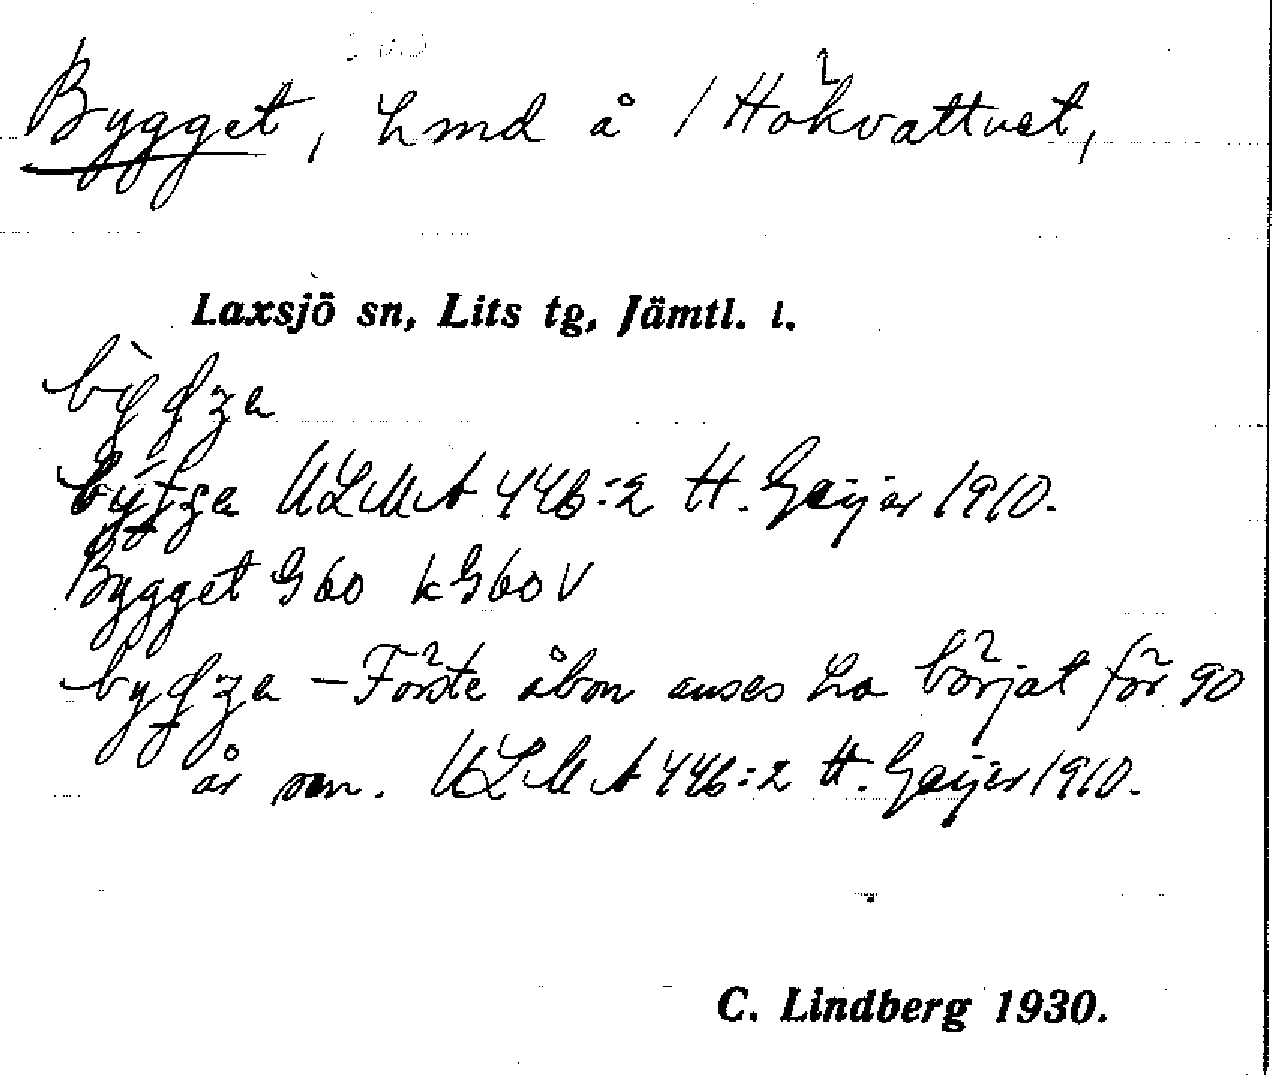 Bygget, hmd å /Hökvattnet,
Laxsjö sn, Lits tg, Jämtl. l.
ULMA 446:2 H. Geijer 1910.
Bygget G60 k G60 V
– Förste åbon anses ha börjat för 90
år sen. ULMA 446:2 H. Geijer 1910.
C. Lindberg 1930.